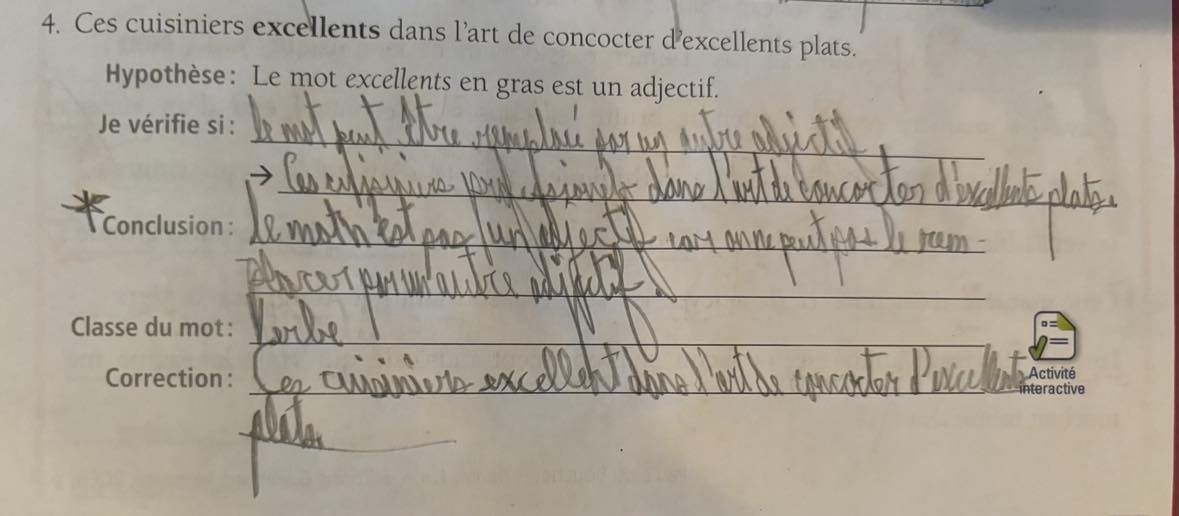 4. Ces cuisiniers excellents dans l'art de concocter d'excellents plats.
Hypothèse : Le mot excellents en gras est un adjectif.
Je vérifie si : le mot peut être remplacé par un autre adjectif
→ Ces cuisiniers professionnels dans l'art de concocter d'excellents plats.
* Conclusion : le mot n'est pas un adjectif car on ne peut pas le rem-
placer par un autre adjectif.
Classe du mot : Verbe
Correction : Ces cuisiniers excellent dans l'art de concocter d'excellents
plats
Activité
interactive